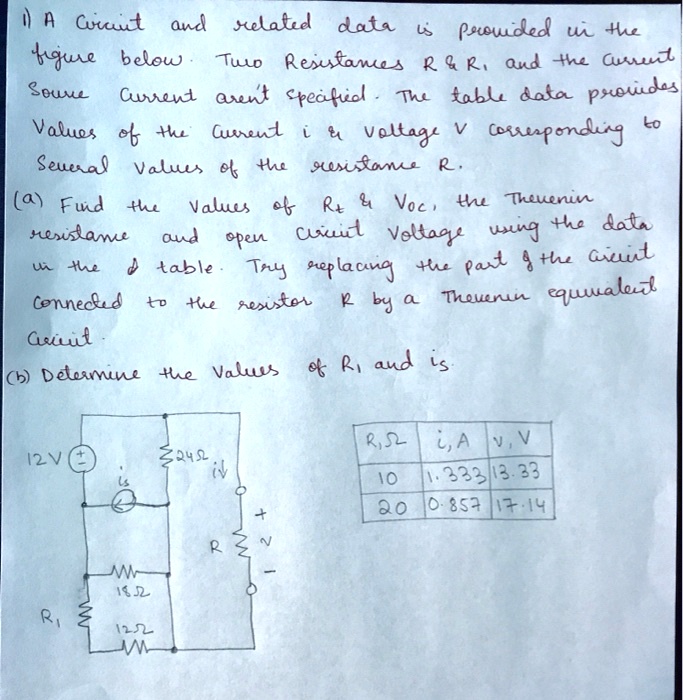 1) A Circuit and related data is provided in the
figure below. Two Resistances R & R, and the Current
Source Current aren't specified. The table data provides
Values of the current i & Voltage V corresponding to
Several values of the resistance R.
(a) Find the values of Rt & Voc, the Thevenin
resistance and open circuit Voltage using the data
in the table. Try replacing the part of the circuit
connected to the resistor R by a Thevenin equivalent
circuit.
(b) Determine the values of R1 and is.
12V
+
-
24Ω
i↓
is
R
+
v
-
18Ω
R1
12Ω
R,Ω i,A v,V
10 1.333 13.33
20 0.857 17.14